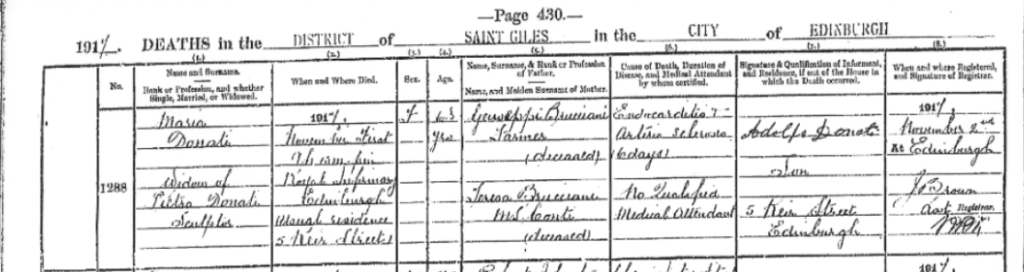 —Page 430.—
1917. DEATHS in the DISTRICT of SAINT GILES in the CITY of EDINBURGH
(1.) (2.) (3.) (4.) (5.) (6.) (7.) (8.)
No.
Name and Surname.
Rank or Profession, and whether Single, Married, or Widowed.
When and Where Died.
Sex.
Age.
Name, Surname, & Rank or Profession of Father.
Name, and Maiden Surname of Mother.
Cause of Death, Duration of Disease, and Medical Attendant by whom certified.
Signature & Qualification of Informant, and Residence, if out of the House in which the Death occurred.
When and where Registered, and Signature of Registrar.
1288
Maria
Donati
Widow of
Pietro Donati
Sculptor
1917,
November First
Royal Infirmary
Edinburgh
Usual residence
5 Keir Street)
F
yrs
Bruciani
Farmer
(deceased)
Teresa Bruciani
M.S. Conti
(deceased)
Endocarditis &
Arterio Sclerosis
6 days
No Qualified
Medical Attendant
Adolfo Donati
Son
5 Keir Street
Edinburgh
1917,
November 2nd
At Edinburgh
J. Brown
Asst Registrar.
1917